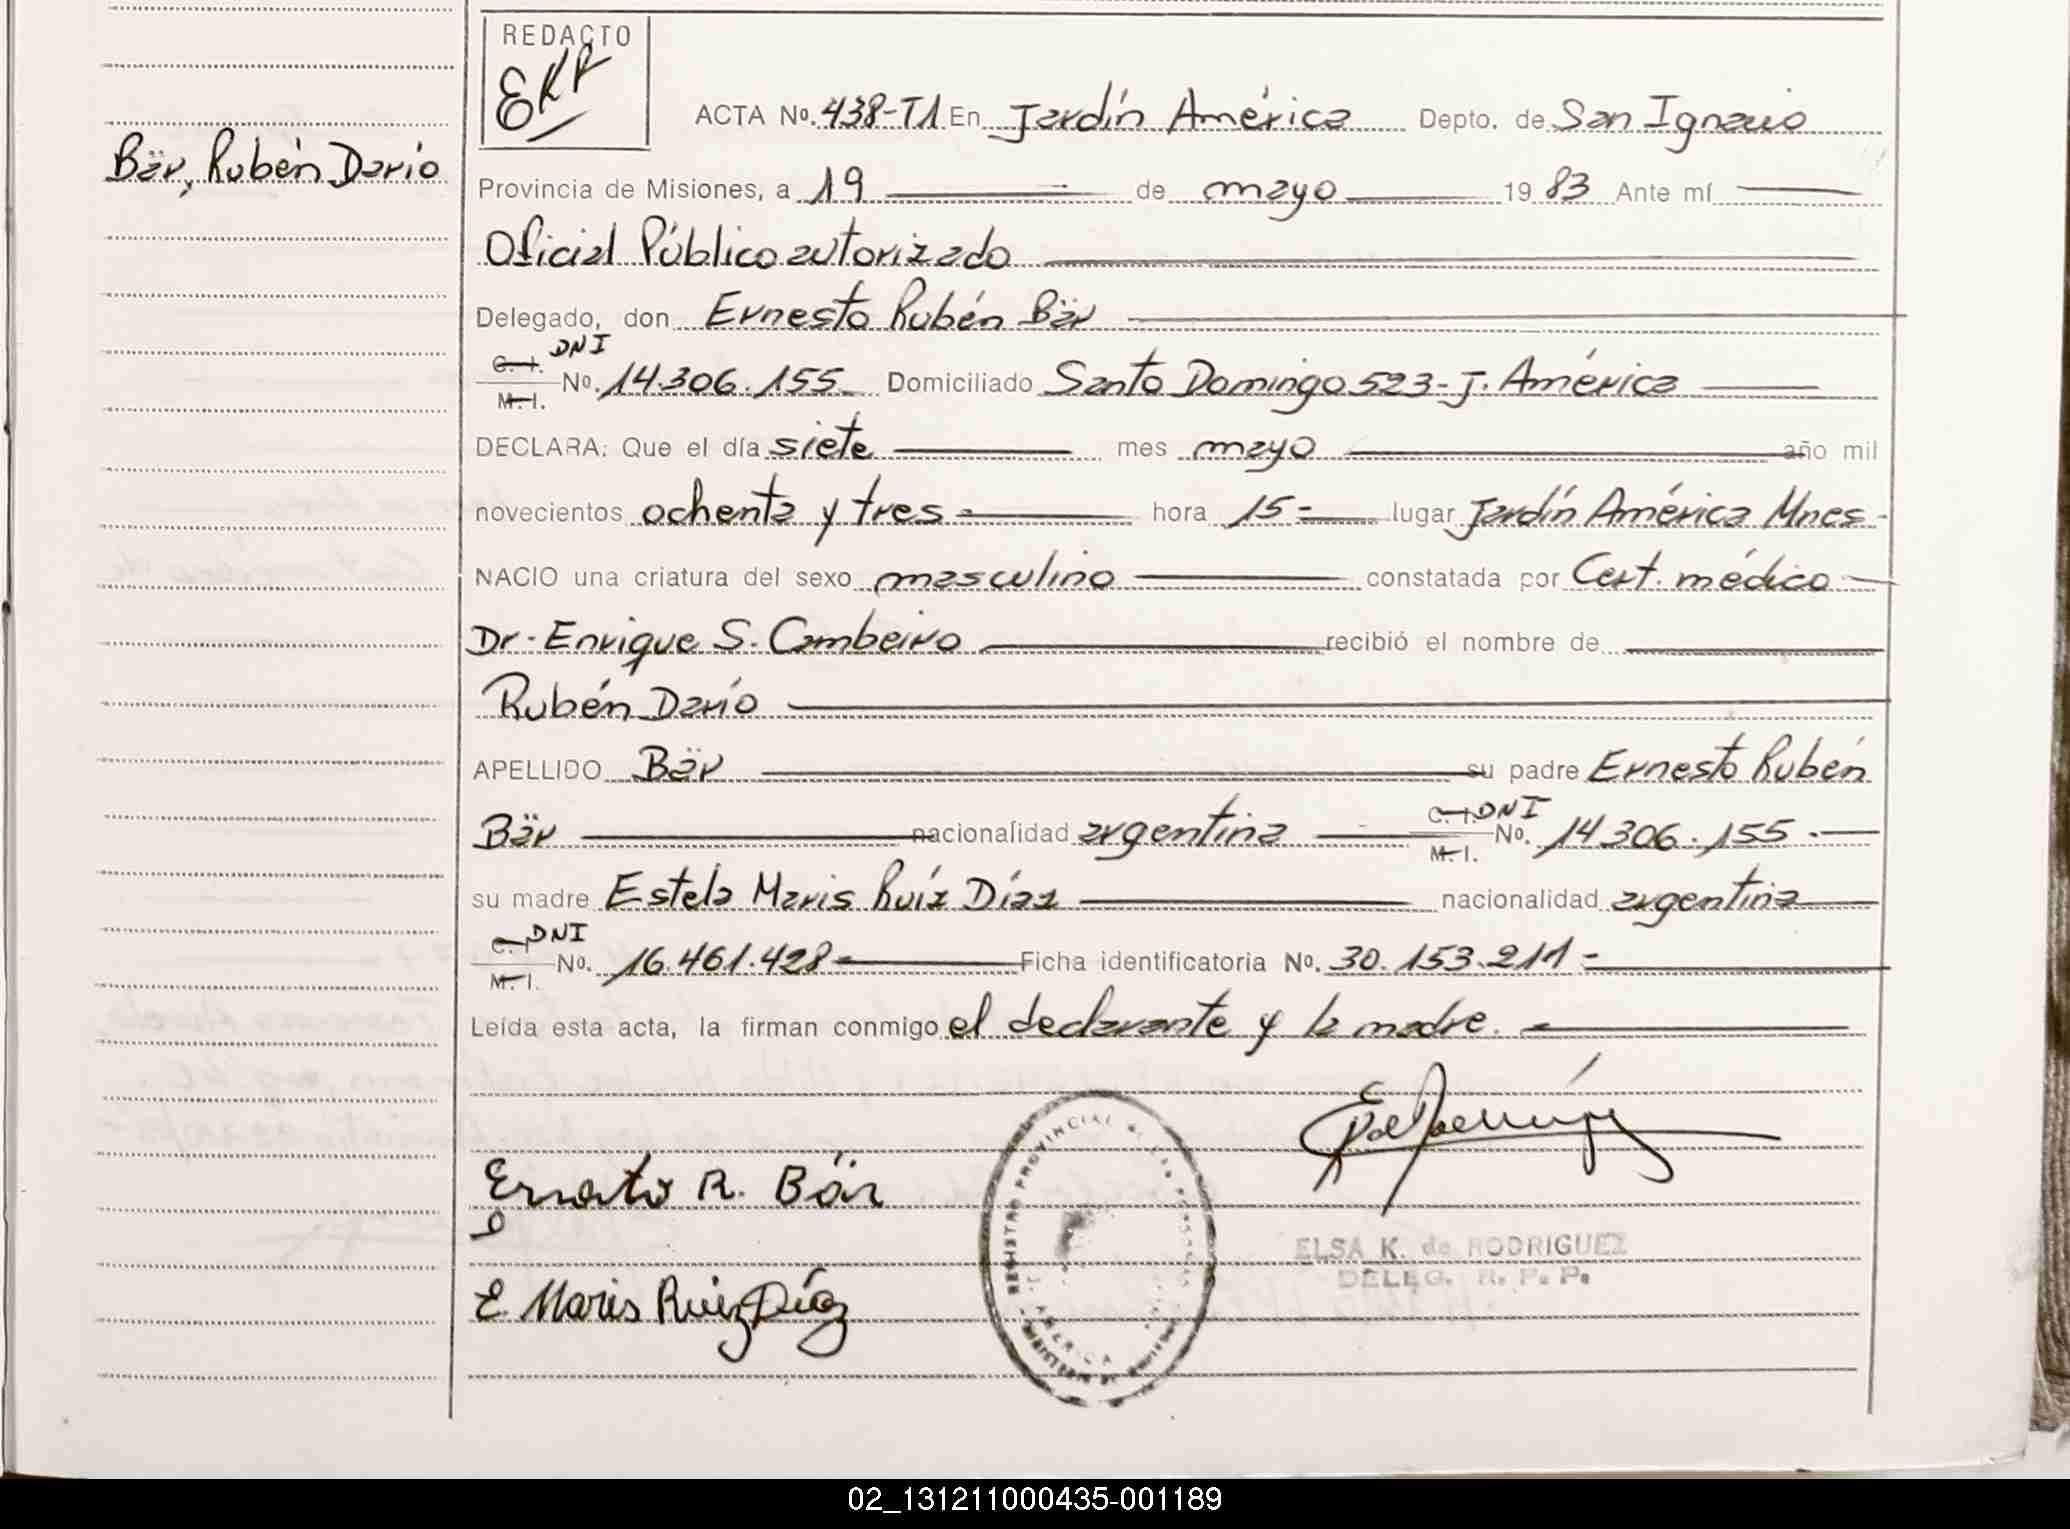 REDACTO
EKR
ACTA No. 438-T1 En Jardín América Depto. de San Ignacio
Bär, Rubén Darío
Provincia de Misiones, a 19 de mayo 1983 Ante mí
Oficial Público autorizado
Delegado, don Ernesto Rubén Bär
C. I. DNI
M. I. No. 14.306.155 Domiciliado Santo Domingo 523-J. América
DECLARA: Que el día siete mes mayo año mil
novecientos ochenta y tres hora 15 lugar Jardín América Mnes.
NACIO una criatura del sexo masculino constatada por Cert. médico
Dr. Enrique S. Cambeiro recibió el nombre de
Rubén Darío
APELLIDO Bär su padre Ernesto Rubén
Bär nacionalidad argentina C. I. DNI M. I. No. 14.306.155.
su madre Estela Maris Ruíz Díaz nacionalidad argentina
C. I. DNI
M. I. No. 16.461.428 Ficha identificatoria No. 30.153.211
Leída esta acta, la firman conmigo el declarante y la madre.
REGISTRO PROVINCIAL DE LAS PERSONAS
AMERICA
Ernesto R. Bär
ELSA K. de RODRIGUEZ
DELEG. R. P. P.
E. Maris Ruiz Díaz
02_131211000435-001189